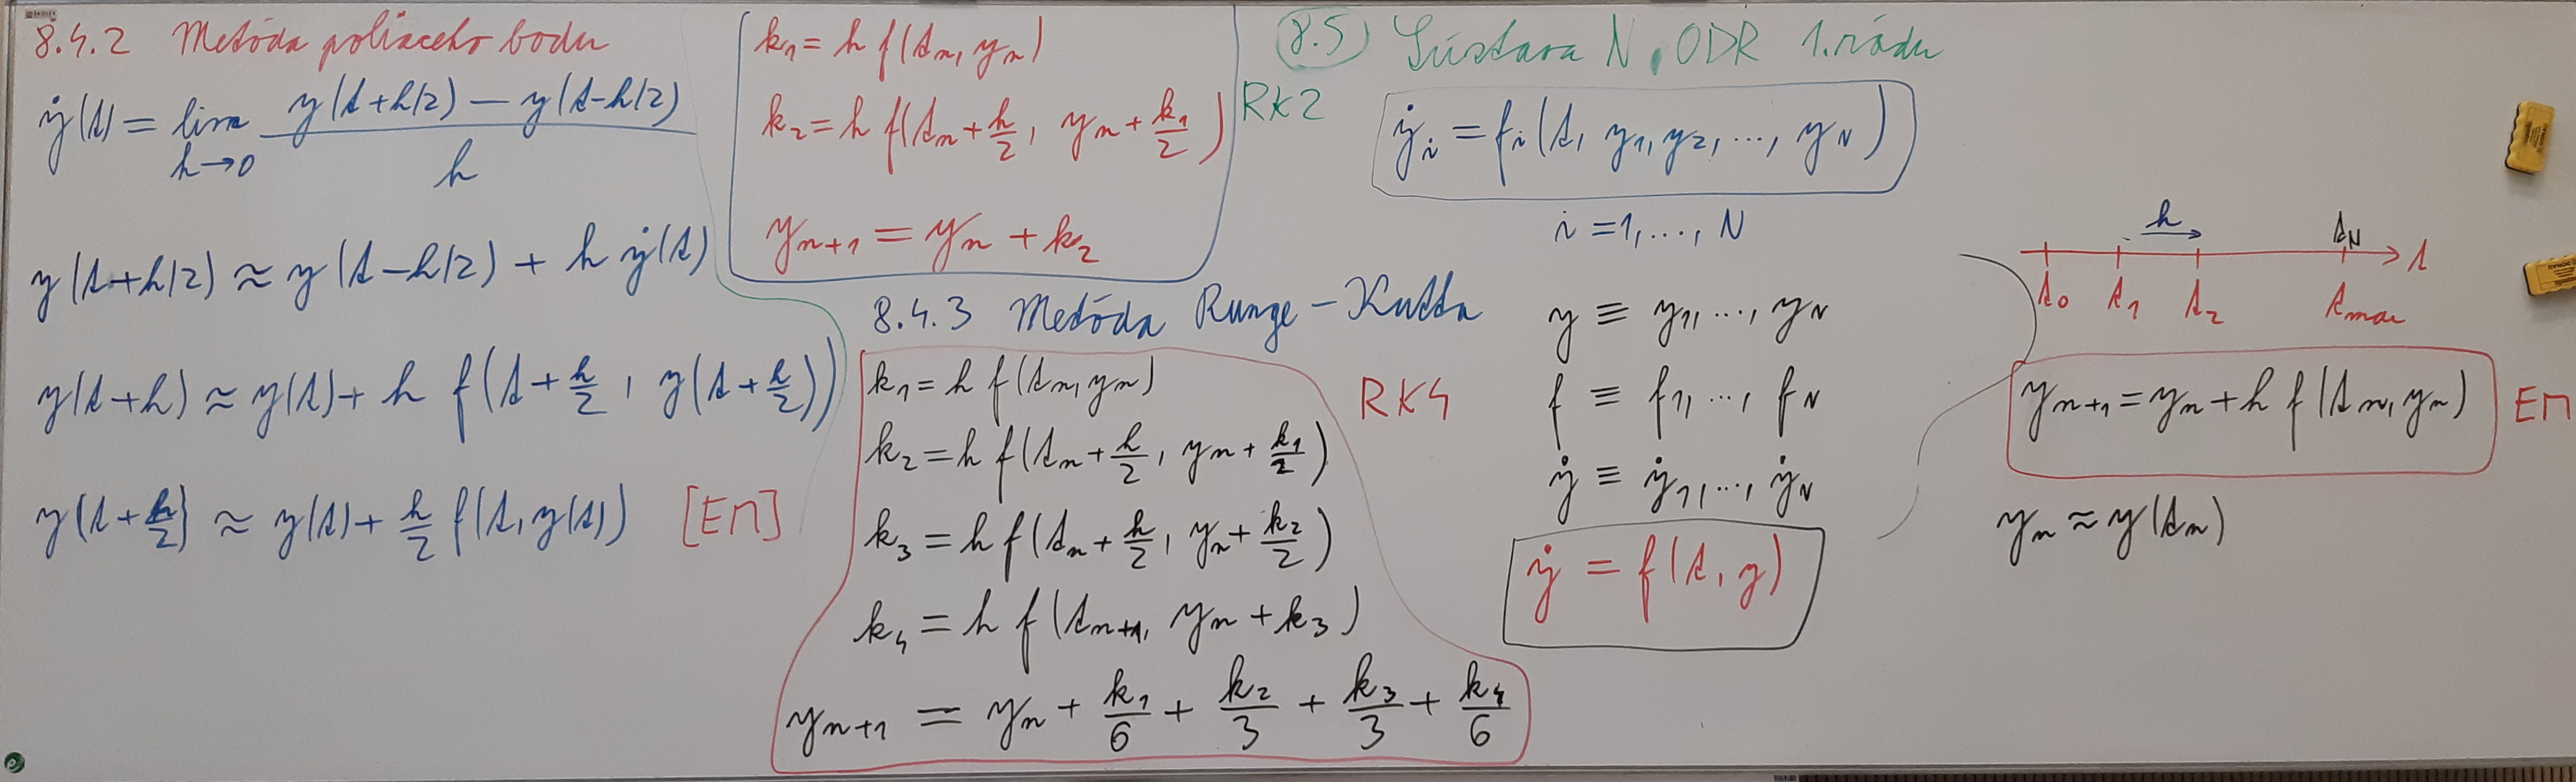 8.4.2 Metóda poliaceho bodu
ẏ(t) = lim h→0 (y(t+h/2) − y(t-h/2)) / h
y(t+h/2) ≈ y(t-h/2) + h ẏ(t)
y(t+h) ≈ y(t) + h f(t + h/2, y(t + h/2))
y(t + h/2) ≈ y(t) + h/2 f(t, y(t)) [EM]
k₁ = h f(tₙ, yₙ)
k₂ = h f(tₙ + h/2, yₙ + k₁/2) RK2
yₙ₊₁ = yₙ + k₂
8.4.3 Metóda Runge-Kutta
k₁ = h f(tₙ, yₙ) RK4
k₂ = h f(tₙ + h/2, yₙ + k₁/2)
k₃ = h f(tₙ + h/2, yₙ + k₂/2)
k₄ = h f(tₙ₊₁, yₙ + k₃)
yₙ₊₁ = yₙ + k₁/6 + k₂/3 + k₃/3 + k₄/6
8.5 Sústava N ODR 1. rádu
ẏᵢ = fᵢ(t, y₁, y₂, ..., y_N)
i = 1, ..., N
y ≡ y₁, ..., y_N
f ≡ f₁, ..., f_N
ẏ ≡ ẏ₁, ..., ẏ_N
ẏ = f(t, y)
h t_N
t₀ t₁ t₂ t_max t
yₙ₊₁ = yₙ + h f(tₙ, yₙ) EM
yₙ ≈ y(tₙ)